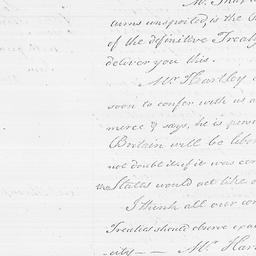 Mr. Thax
arms unspotted, is the
of the definitive Treaty
deliver you this.
Mr Hartley
soon to confer with us a
merce & says, he is pers
Britain will be liber
not doubt itself it was con
the States would act like
I think all our con
Treaties should observe exa
city — — Mr. Hart